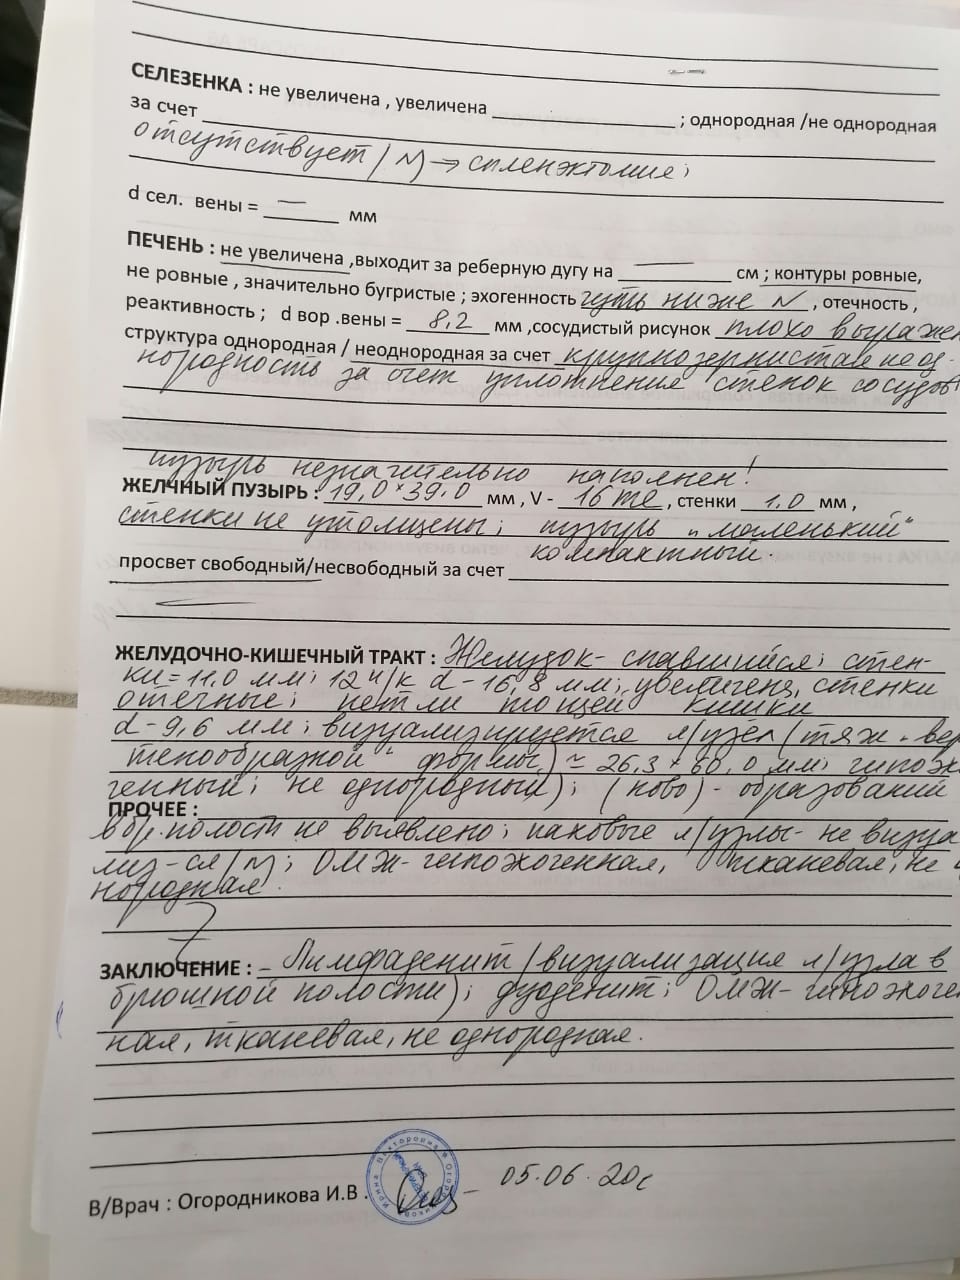 СЕЛЕЗЕНКА : не увеличена , увеличена ____________ ; однородная /не однородная
за счет
отсутствует / N → спленэктомия;
d сел. вены = — мм
ПЕЧЕНЬ : не увеличена ,выходит за реберную дугу на — см ; контуры ровные,
не ровные , значительно бугристые ; эхогенность чуть ниже N , отечность ,
реактивность ; d вор .вены = 8,2 мм ,сосудистый рисунок плохо выражен
структура однородная / неоднородная за счет крупнозернистая неод-
нородность за счет уплотнения стенок сосудов
пузырь незначительно наполнен!
ЖЕЛЧНЫЙ ПУЗЫРЬ : 19,0 × 39,0 мм , V - 16 , стенки 1,0 мм ,
стенки не утолщены; пузырь „маленький"
компактный.
просвет свободный/несвободный за счет
—
ЖЕЛУДОЧНО-КИШЕЧНЫЙ ТРАКТ : Желудок- спавшийся; стен-
ки = 11,0 мм; 12 п/к d - 16,8 мм; увеличена, стенки
отечные; петли тощей кишки
d - 9,6 мм; визуализируется л/узел (тяж „вер
тенообразной" формы) ≈ 26,3 × 60,0 мм; гипоэх
генный; не однородный); (ново) - образований
ПРОЧЕЕ :
в бр. полости не выявлено; паховые л/узлы- не визуа
лиз-ся (N); ОМЖ- гипоэхогенная, тканевая, не
нородная.
ЗАКЛЮЧЕНИЕ : - Лимфаденит (визуализация л/узла в
брюшной полости); дуоденит; ОМЖ- гипоэхоген
ная, тканевая, не однородная.
В/Врач : Огородникова И.В . 05.06.20г